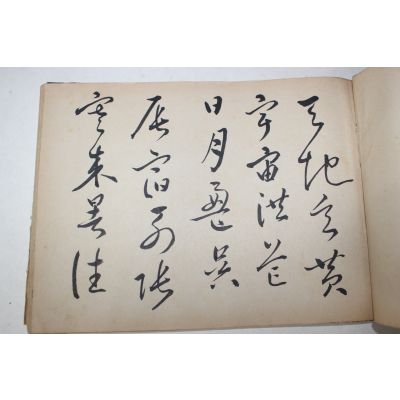 天地玄黃
宇宙洪荒
日月盈昃
辰宿列張
寒來暑往